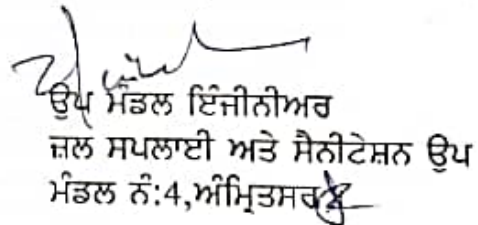 ਉਪ ਮੰਡਲ ਇੰਜੀਨੀਅਰ
ਜ਼ਲ ਸਪਲਾਈ ਅਤੇ ਸੈਨੀਟੇਸ਼ਨ ਉਪ
ਮੰਡਲ ਨੰ:4,ਅੰਮ੍ਰਿਤਸਰ